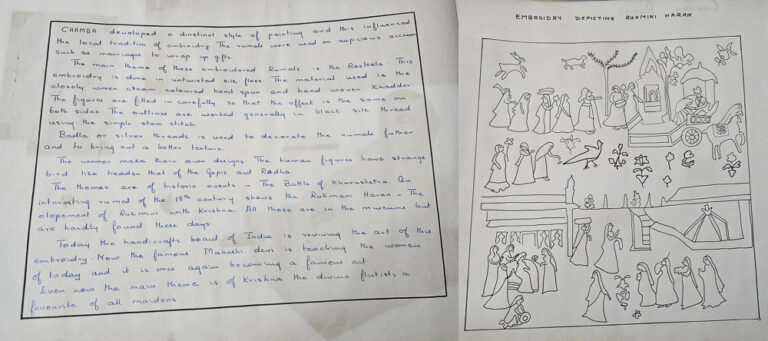 CHAMBA developed a dinstinct style of painting and this influenced
the local tradition of embroidry. The rumals were used on aupicious occasion
such as marriages to wrap up gifts.
The main theme of these embroidered Rumals is the Rasleela. This
embroidery is done in untwisted silk floss. The material used is the
closely woven cream coloured hand spun and hand woven Khadder.
The figures are filled in carefully so that the effect is the same on
both sides. The outlines are worked generally in black silk thread
using the simple stem stitch.
Badla or silver threads is used to decorate the rumals futher
and to bring out a better texture.
The women make their own designs. The human figures have strange
bird like heads – that of the Gopis and Radha.
The themes are of historic events – The Battle of Khurushetra. An
interesting rumal of the 18th century shows the Rukmani Haran – The
elopement of Rukmini with Krishna. All these are in the museums but
are hardly found these days.
Today the handicrafts board of India is reviving the art of this
embroidry. Now the famous Maheshi devi is teaching the woman
of today and it is once again becoming a famous art.
Even now the main theme is of Krishna the divine flutist, a
favourite of all maidens.
EMBROIDRY DEPICTING RUKMINI HARAN